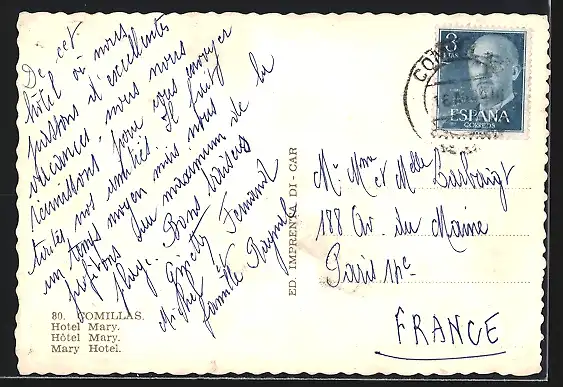 De cet
hôtel où nous
passons d'excellentes
vacances, nous nous
réunissons pour vous envoyer
toutes nos amitiés. Il fait
un temps moyen mais nous
profitons au maximum de la
plage. Bons baisers
Ginette Fernand
Michel et
famille
80. COMILLAS.
Hotel Mary.
Hôtel Mary.
Mary Hotel.
ED. IMPRENTA DI-CAR
3
PTAS
ESPAÑA
CORREOS
CO
Mr Mme et Melle
188 Av. du Maine
Paris 14e
FRANCE